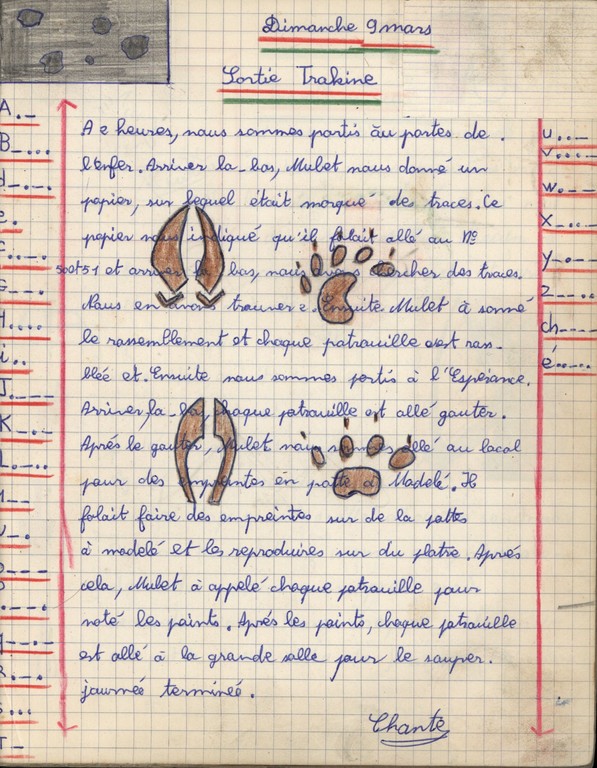 Dimanche 9 mars
Sortie Trakine
A 2 heures, nous sommes partis âu portes de
l'Enfer. Arriver la-bas, Mulet nous donné un
papier, sur lequel était marqué des traces. Ce
papier nous indiqué qu'il falait allé au N°
500+51 et arriver la bas, nous avons chercher des traces.
Nous en avons trouver 2. Ensuite Mulet à sonné
le rassemblement et chaque patrouille est ras-
blée et. Ensuite nous sommes partis à l'Espérance.
Arriver la-bas, chaque patrouille est allé gouter.
Aprés le gouter, Mulet nous sommes allé au local
pour des empreintes en patte à Madelé. Il
falait faire des empreintes sur de la pattes
à madelé et les reproduires sur du platre. Aprés
cela, Mulet à appelé chaque patrouille pour
noté les points. Aprés les points, chaque patrouille
est allé à la grande salle pour le souper.
journée terminéé.
Chante
A . _
B _ . . .
d _ . .
e .
i . .
J . _ _ _
K _ . _
L . _ . .
s . . .
T _
u . . _
v . . . _
w . _ _
x _ . . _
y _ . _ _
z _ _ . .
ch _ _ _ _
é . . _ . .